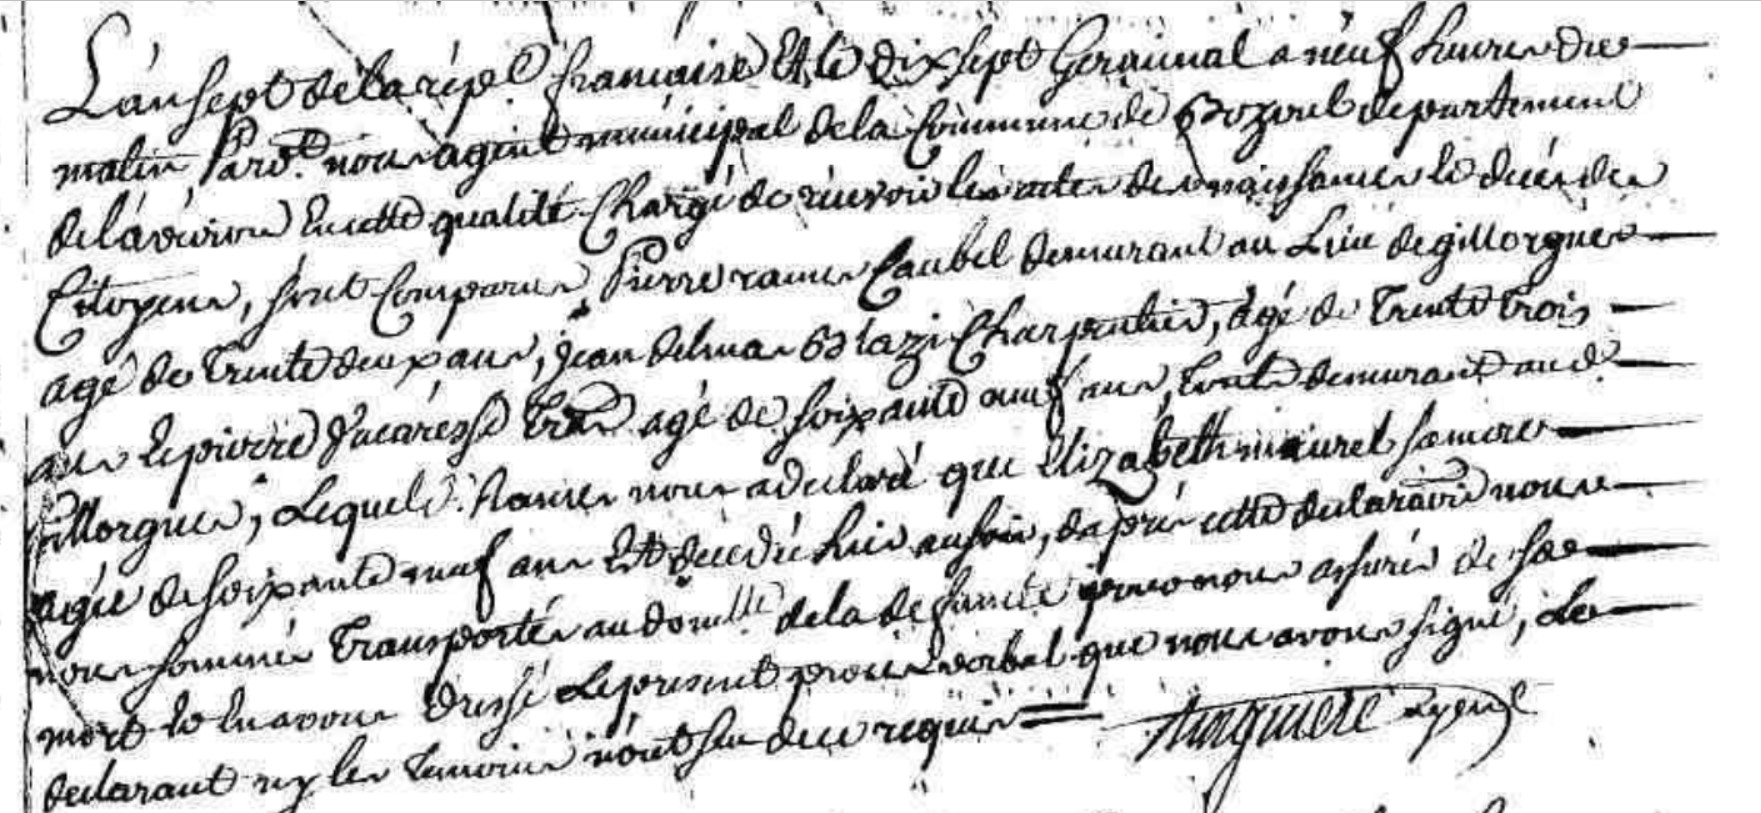 L'an sept de la rép.e française Et le dix sept Germinal a neuf heures du
matin, Par d.t nous agent municipal de la Commune de Bozouls departement
de l'aveiron En cette qualité Chargé de recevoir les actes de naissances le décés des
Citoyens, sont Comparus Pierre rames Caubel demeurant au Lieu de gillorgues
agé de Trente deux ans, jean delmas Blazi Charpentier, agé de Trente trois
ans Et pierre agé de soixante neuf ans, demeurant aud.
gillorgues, Lequel d. Rames nous a declaré que Elizabeth maurel sa mere
agée de soixante neuf ans Est décédée hier au soir, d'après cette declara.on nous
nous sommes Transportés au dom.lle de la defuncte pour nous assurés de sa
mort Et En avons Dressé Le present procès verbal que nous avons signé, Le
declarant ny les Temoins n'ont seu de ce requis
agent